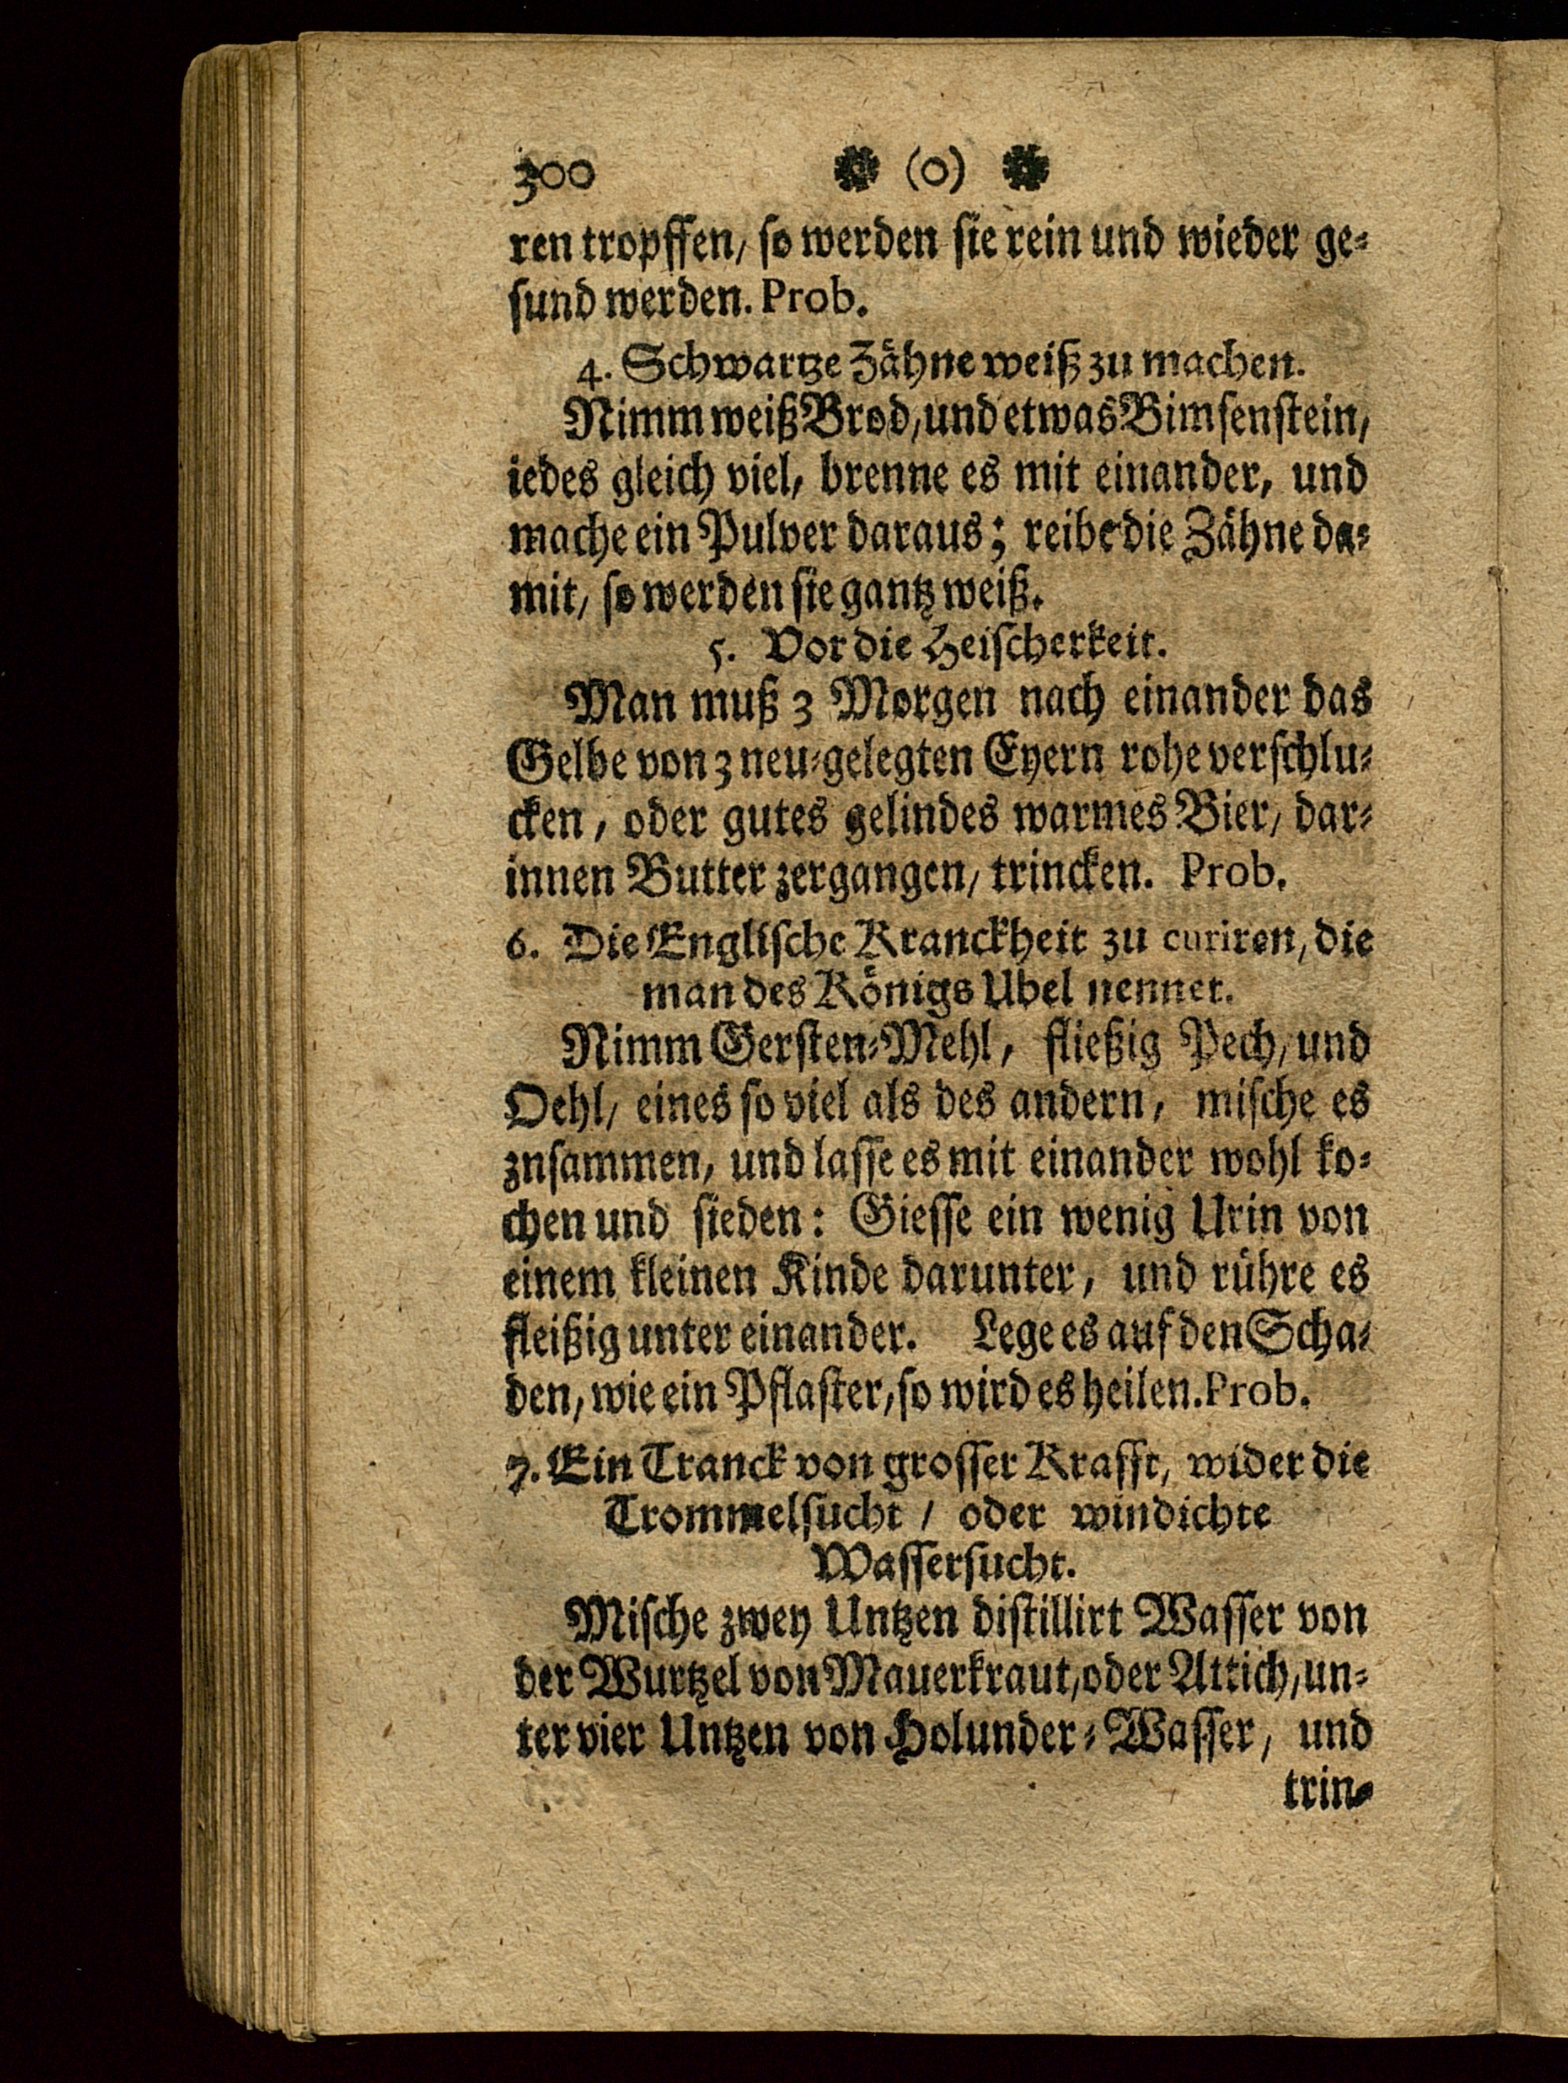 300 ✽ (o) ✽
ren tropffen/ so werden sie rein und wieder ge-
sund werden. Prob.
4. Schwartze Zähne weiß zu machen.
Nimm weiß Brod, und etwas Bimsenstein,
iedes gleich viel, brenne es mit einander, und
mache ein Pulver daraus; reibe die Zähne da-
mit, so werden sie gantz weiß.
5. Vor die Heischerkeit.
Man muß 3 Morgen nach einander das
Gelbe von 3 neu-gelegten Eyern rohe verschlu-
cken, oder gutes gelindes warmes Bier, dar-
innen Butter zergangen, trincken. Prob.
6. Die Englische Kranckheit zu curiren, die
man des Königs Ubel nennet.
Nimm Gersten-Mehl, fließig Pech, und
Oehl, eines so viel als des andern, mische es
znsammen, und lasse es mit einander wohl ko-
chen und sieden: Giesse ein wenig Urin von
einem kleinen Kinde darunter, und rühre es
fleißig unter einander. Lege es auf den Scha-
den, wie ein Pflaster, so wird es heilen. Prob.
7. Ein Tranck von grosser Krafft, wider die
Trommelsucht / oder windichte
Wassersucht.
Mische zwey Untzen distillirt Wasser von
der Wurtzel von Mauerkraut, oder Attich, un-
ter vier Untzen von Holunder-Wasser, und
trin-